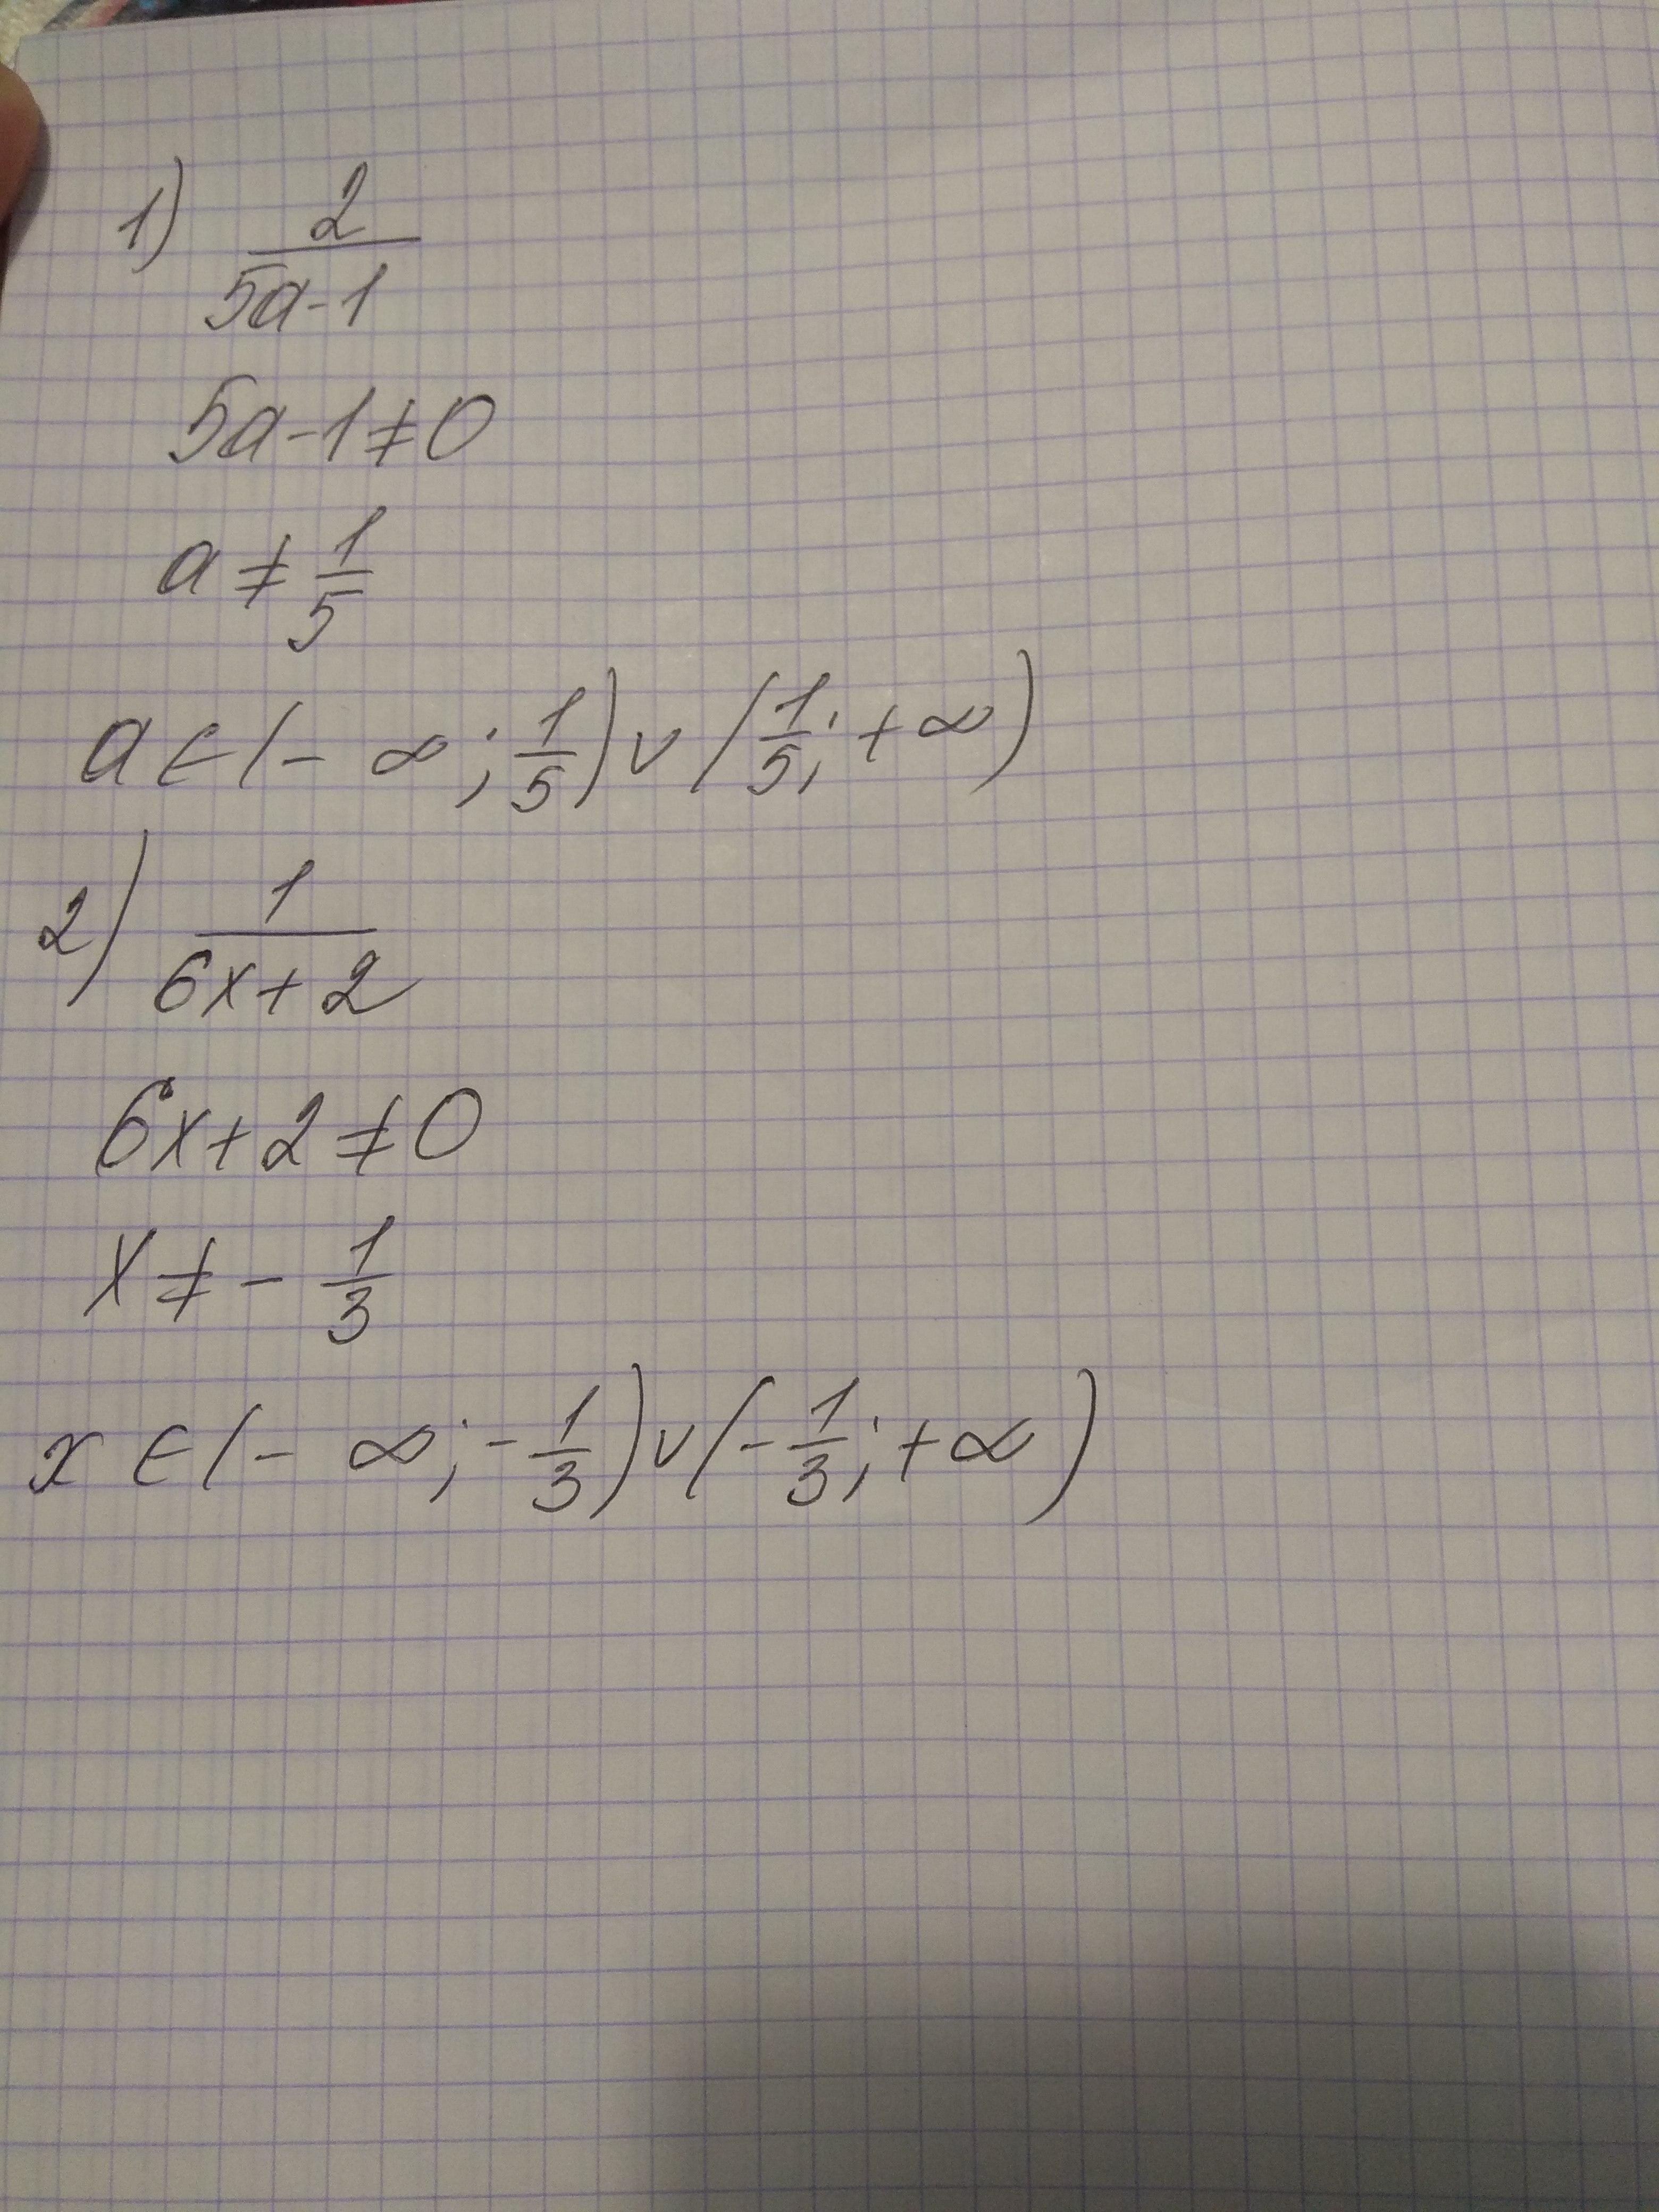 1) 2/(5a-1)
5a-1≠0
a ≠ 1/5
a ∈ (- ∞; 1/5) ∪ (1/5; +∞)
2) 1/(6x+2)
6x+2≠0
x ≠ - 1/3
x ∈ (- ∞; -1/3) ∪ (-1/3; +∞)